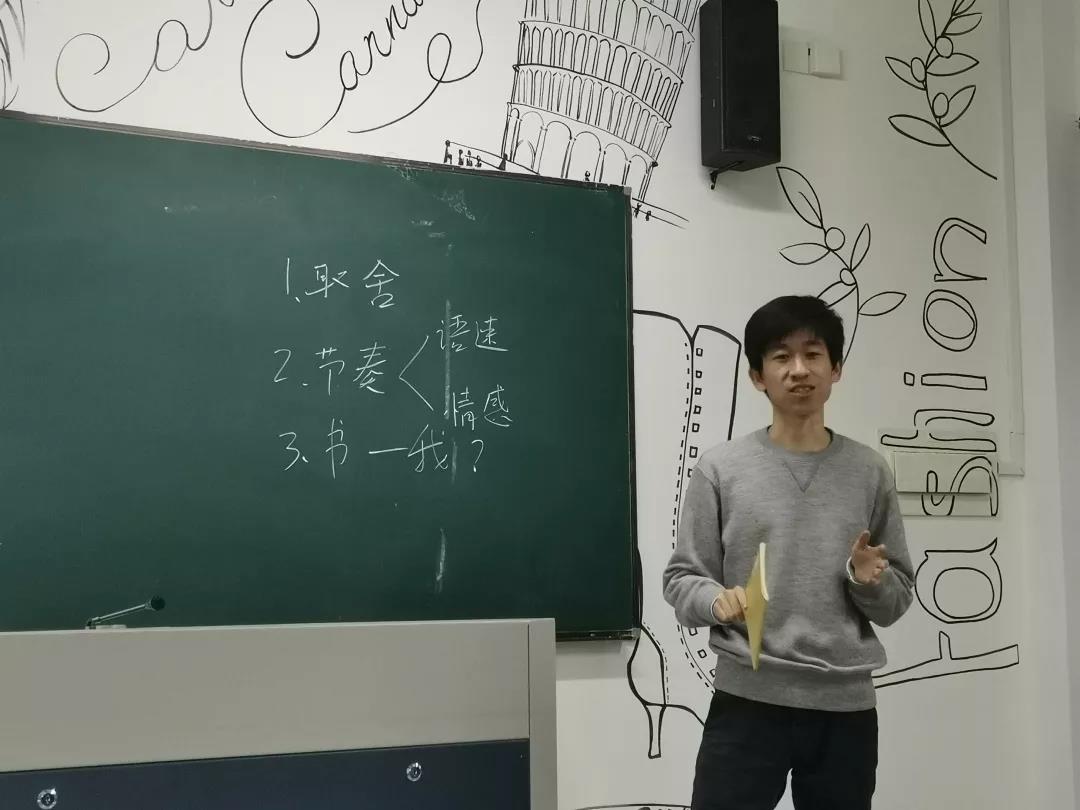 Carna
1. 取舍
2. 节奏
语速
情感
3. 书一我?
fashion